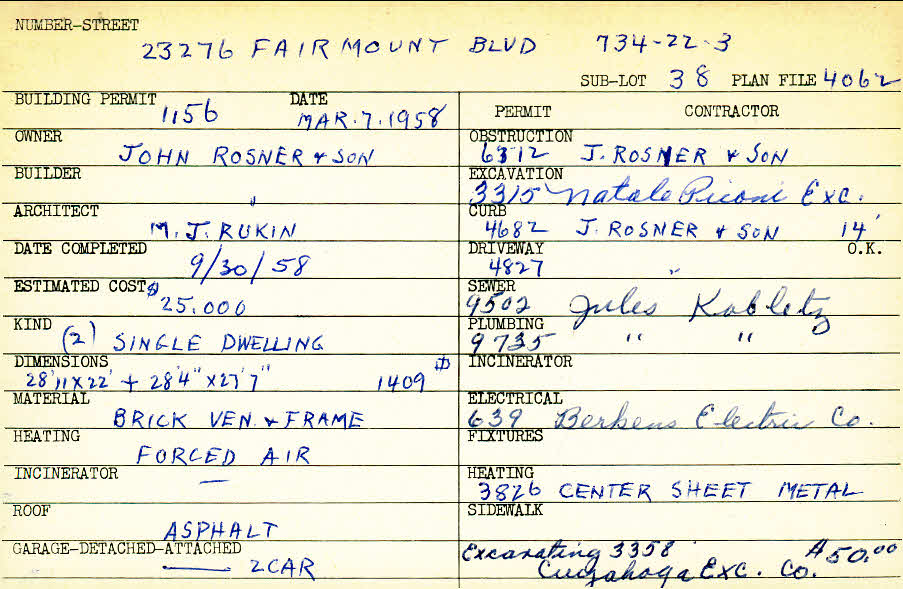 NUMBER-STREET
23276 FAIRMOUNT BLVD 734-22-3
SUB-LOT 38 PLAN FILE 4062
BUILDING PERMIT DATE
1156 MAR. 7. 1958
OWNER
JOHN ROSNER & SON
BUILDER
"
ARCHITECT
M. J. RUKIN
DATE COMPLETED
9/30/58
ESTIMATED COST $
25.000
KIND
(2) SINGLE DWELLING
DIMENSIONS
28'11 X 22' + 28'4" X 27'7" 1409
MATERIAL
BRICK VEN. & FRAME
HEATING
FORCED AIR
INCINERATOR
—
ROOF
ASPHALT
GARAGE-DETACHED-ATTACHED
2 CAR
PERMIT CONTRACTOR
OBSTRUCTION
6312 J. ROSNER & SON
EXCAVATION
3315 Natale Piconi Exc.
CURB
4682 J. ROSNER & SON 14'
DRIVEWAY O.K.
4827 "
SEWER
9502 Jules Kobletz
PLUMBING
9735 " "
INCINERATOR
ELECTRICAL
639 Berkens Electric Co.
FIXTURES
HEATING
3826 CENTER SHEET METAL
SIDEWALK
Excavating 3358 $50.00
Cuyahoga Exc. Co.